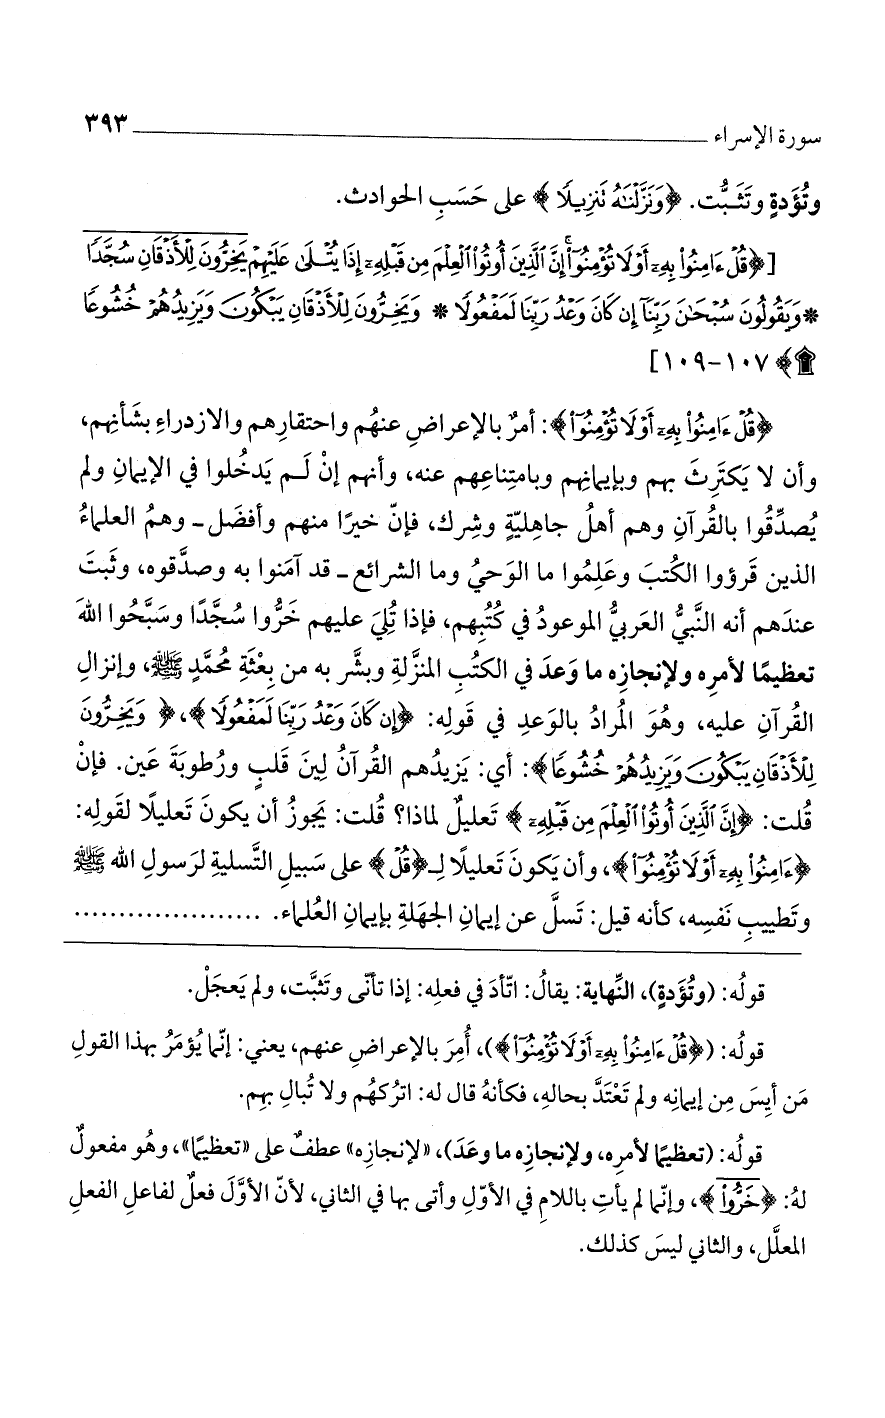 سورة الإسراء ٣٩٣
وتُؤَدةٍ وتَثَبُّت. ﴿وَنَزَّلْنَٰهُ تَنزِيلًا﴾ على حَسَبِ الحوادث.
[﴿قُلْ ءَامِنُوا۟ بِهِۦٓ أَوْ لَا تُؤْمِنُوٓا۟ ۚ إِنَّ ٱلَّذِينَ أُوتُوا۟ ٱلْعِلْمَ مِن قَبْلِهِۦٓ إِذَا يُتْلَىٰ عَلَيْهِمْ يَخِرُّونَ لِلْأَذْقَانِ سُجَّدًا
* وَيَقُولُونَ سُبْحَٰنَ رَبِّنَآ إِن كَانَ وَعْدُ رَبِّنَا لَمَفْعُولًا * وَيَخِرُّونَ لِلْأَذْقَانِ يَبْكُونَ وَيَزِيدُهُمْ خُشُوعًا
۩﴾ ١٠٧-١٠٩]
﴿قُلْ ءَامِنُوا۟ بِهِۦٓ أَوْ لَا تُؤْمِنُوٓا۟﴾: أمرٌ بالإعراضِ عنهُم واحتقارِهم والازدراءِ بشَأنِهم،
وأن لا يَكتَرِثَ بهم وبإيمانِهم وبامتِناعِهم عنه، وأنهم إنْ لَـم يَدخُلوا في الإيمانِ ولم
يُصدِّقُوا بالقُرآنِ وهم أهلُ جاهليّةٍ وشِرك، فإنّ خيرًا منهم وأفضَل ـ وهمُ العلماءُ
الذين قَرؤوا الكُتبَ وعَلِمُوا ما الوَحيُ وما الشرائع ـ قد آمَنوا به وصدَّقوه، وثَبتَ
عندَهم أنه النَّبيُّ العَربيُّ الموعودُ في كُتُبِهم، فإذا تُلِيَ عليهم خَرُّوا سُجَّدًا وسَبَّحُوا اللهَ
تعظيمًا لأمرِه ولإنجازِه ما وَعدَ في الكتُبِ المنزَّلةِ وبشَّر به من بِعْثَةِ محُمَّدٍ ﷺ، وإنزالِ
القُرآنِ عليه، وهُوَ المُرادُ بالوَعدِ في قَولِه: ﴿إِن كَانَ وَعْدُ رَبِّنَا لَمَفْعُولًا﴾، ﴿وَيَخِرُّونَ
لِلْأَذْقَانِ يَبْكُونَ وَيَزِيدُهُمْ خُشُوعًا﴾: أي: يَزيدُهم القُرآنُ لِينَ قَلبٍ ورُطوبَةَ عَين. فإنْ
قُلت: ﴿إِنَّ ٱلَّذِينَ أُوتُوا۟ ٱلْعِلْمَ مِن قَبْلِهِۦٓ﴾ تَعليلٌ لماذا؟ قُلت: يَجوزُ أن يكونَ تَعليلًا لقَولِه:
﴿ءَامِنُوا۟ بِهِۦٓ أَوْ لَا تُؤْمِنُوٓا۟﴾، وأن يَكونَ تَعليلًا لِـ﴿قُلْ﴾ على سَبيلِ التَّسليةِ لرَسولِ الله ﷺ
وتَطييبِ نَفسِه، كأنه قيل: تَسلَّ عن إيمانِ الجهَلةِ بإيمانِ العُلماء. .....................
قولُه: (وتُؤَدةٍ)، النِّهاية: يقالُ: اتّأدَ في فعلِه: إذا تأنّى وتَثبَّت، ولم يَعجَلْ.
قولُه: (﴿قُلْ ءَامِنُوا۟ بِهِۦٓ أَوْ لَا تُؤْمِنُوٓا۟﴾)، أُمِرَ بالإعراضِ عنهم، يعني: إنّما يُؤمَرُ بهذا القولِ
مَن أيِسَ مِن إيمانِه ولم تَعْتَدَّ بحالهِ، فكأنهُ قال له: اترُكهُم ولا تُبالِ بهم.
قولُه: (تعظيمًا لأمرِه، ولإنجازِه ما وعَدَ)، «لإنجازِه» عطفٌ على «تعظيمًا»، وهُو مفعولٌ
لهُ: ﴿خَرُّوا۟﴾، وإنّما لم يأتِ باللامِ في الأوّلِ وأتى بها في الثاني، لأنّ الأوَّلَ فعلٌ لفاعلِ الفعلِ
المعلَّل، والثاني ليسَ كذلك.